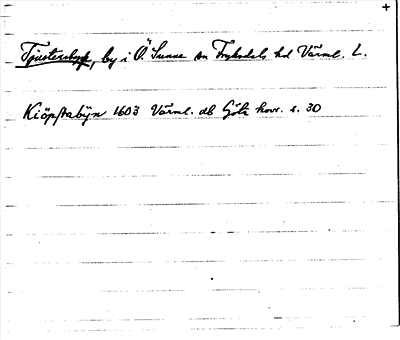 +
by i Ö. Sunne sn Fryksdals hd Värml. L.
Kiöpstabÿn 1603 Värml. db Göta hovr. s. 30